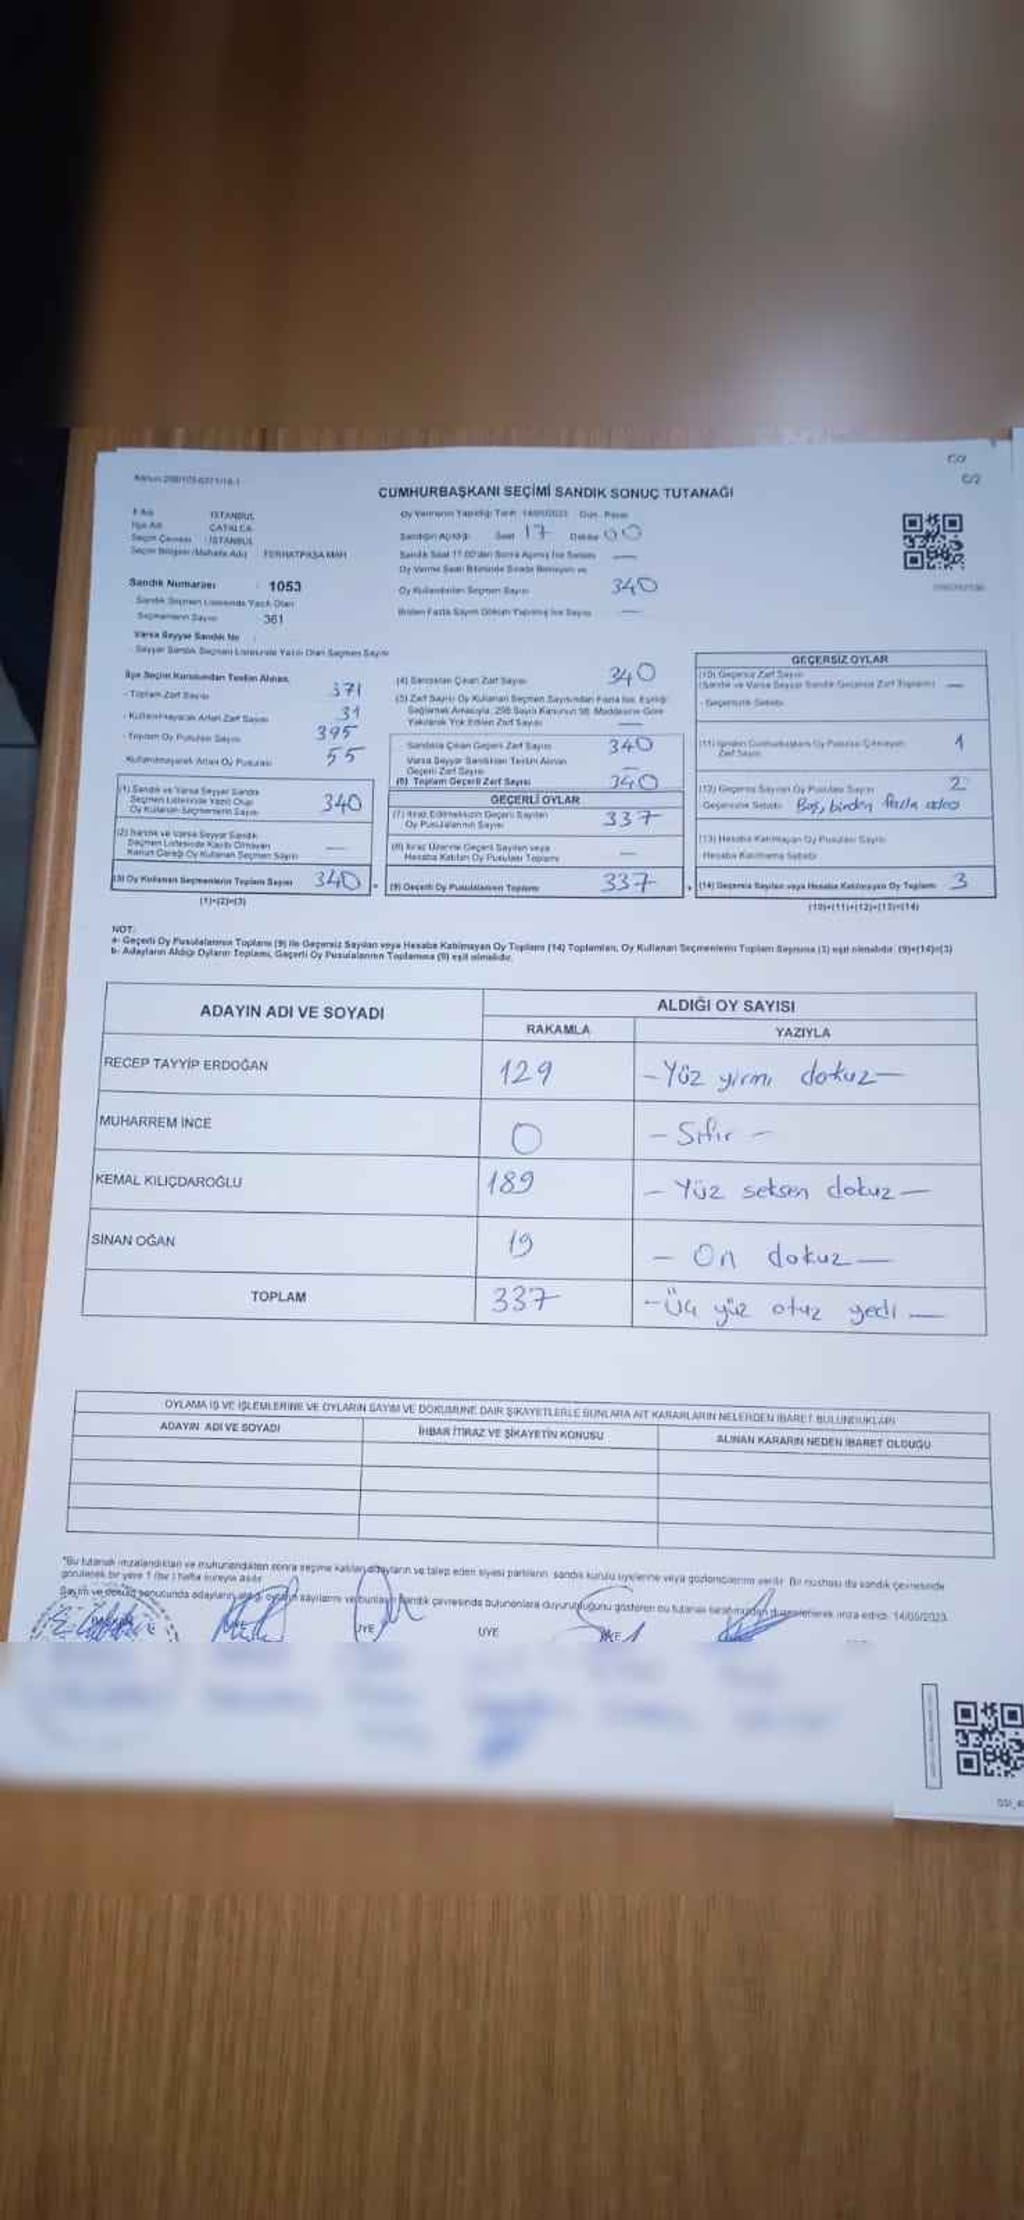 C/2
C/2
CUMHURBAŞKANI SEÇİMİ SANDIK SONUÇ TUTANAĞI
İl Adı : İSTANBUL
İlçe Adı : ÇATALCA
Seçim Çevresi : İSTANBUL
Seçim Bölgesi (Mahalle Adı) : FERHATPAŞA MAH
Sandık Numarası : 1053
Sandık Seçmen Listesinde Yazılı Olan
Seçmenlerin Sayısı : 361
Varsa Seyyar Sandık No :
Seyyar Sandık Seçmen Listesinde Yazılı Olan Seçmen Sayısı
Oy Vermenin Yapıldığı Tarih : 14/05/2023 Gün : Pazar
Sandığın Açıldığı Saat 17 Dakika 00
Sandık Saat 17.00'den Sonra Açılmış İse Sebebi —
Oy Verme Saati Bitiminde Sırada Bekleyen ve
Oy Kullandırılan Seçmen Sayısı 340
Birden Fazla Sayım Döküm Yapılmış İse Sayısı —
İlçe Seçim Kurulundan Teslim Alınan;
- Toplam Zarf Sayısı 371
- Kullanılmayarak Artan Zarf Sayısı 31
- Toplam Oy Pusulası Sayısı 395
Kullanılmayarak Artan Oy Pusulası 55
(1) Sandık ve Varsa Seyyar Sandık
Seçmen Listesinde Yazılı Olup
Oy Kullanan Seçmenlerin Sayısı 340
(2) Sandık ve Varsa Seyyar Sandık
Seçmen Listesinde Kaydı Olmayan
Kanun Gereği Oy Kullanan Seçmen Sayısı —
(3) Oy Kullanan Seçmenlerin Toplam Sayısı 340
(1)+(2)=(3)
(4) Sandıktan Çıkan Zarf Sayısı 340
(5) Zarf Sayısı Oy Kullanan Seçmen Sayısından Fazla İse, Eşitliği
Sağlamak Amacıyla, 298 Sayılı Kanunun 98. Maddesine Göre
Yakılarak Yok Edilen Zarf Sayısı —
Sandıkta Çıkan Geçerli Zarf Sayısı 340
Varsa Seyyar Sandıktan Teslim Alınan
Geçerli Zarf Sayısı —
(6) Toplam Geçerli Zarf Sayısı 340
GEÇERLİ OYLAR
(7) İtiraz Edilmeksizin Geçerli Sayılan
Oy Pusulalarının Sayısı 337
(8) İtiraz Üzerine Geçerli Sayılan veya
Hesaba Katılan Oy Pusulası Toplamı —
(9) Geçerli Oy Pusulalarının Toplamı 337
GEÇERSİZ OYLAR
(10) Geçersiz Zarf Sayısı
(Sandık ve Varsa Seyyar Sandık Geçersiz Zarf Toplamı) —
- Geçersizlik Sebebi
(11) İçinden Cumhurbaşkanı Oy Pusulası Çıkmayan
Zarf Sayısı 1
(12) Geçersiz Sayılan Oy Pusulası Sayısı 2
Geçersizlik Sebebi Boş, birden fazla aday
(13) Hesaba Katılmayan Oy Pusulası Sayısı
Hesaba Katılmama Sebebi
(14) Geçersiz Sayılan veya Hesaba Katılmayan Oy Toplamı 3
(10)+(11)+(12)+(13)=(14)
NOT:
a- Geçerli Oy Pusulalarının Toplamı (9) ile Geçersiz Sayılan veya Hesaba Katılmayan Oy Toplamı (14) Toplamları, Oy Kullanan Seçmenlerin Toplam Sayısına (3) eşit olmalıdır. (9)+(14)=(3)
b- Adayların Aldığı Oyların Toplamı, Geçerli Oy Pusulalarının Toplamına (9) eşit olmalıdır.
ADAYIN ADI VE SOYADI
ALDIĞI OY SAYISI
RAKAMLA YAZIYLA
RECEP TAYYİP ERDOĞAN 129 - Yüz yirmi dokuz -
MUHARREM İNCE 0 - Sıfır -
KEMAL KILIÇDAROĞLU 189 - Yüz seksen dokuz -
SİNAN OĞAN 19 - On dokuz -
TOPLAM 337 - Üç yüz otuz yedi -
OYLAMA İŞ VE İŞLEMLERİNE VE OYLARIN SAYIM VE DÖKÜMÜNE DAİR ŞİKAYETLERLE BUNLARA AİT KARARLARIN NELERDEN İBARET BULUNDUKLARI
ADAYIN ADI VE SOYADI İHBAR İTİRAZ VE ŞİKAYETİN KONUSU ALINAN KARARIN NEDEN İBARET OLDUĞU
*Bu tutanak imzalandıktan ve mühürlendikten sonra seçime katılan adayların ve talep eden siyasi partilerin sandık kurulu üyelerine veya gözlemcilerine verilir. Bir nüshası da sandık çevresinde
görülecek bir yere 1 (bir) hafta süreyle asılır.
Sayım ve döküm sonucunda adayların aldığı oyların sayılarını ve bunların sandık çevresinde bulunanlara duyurulduğunu gösteren bu tutanak tarafımızdan düzenlenerek imza edildi. 14/05/2023
ÜYE ÜYE ÜYE